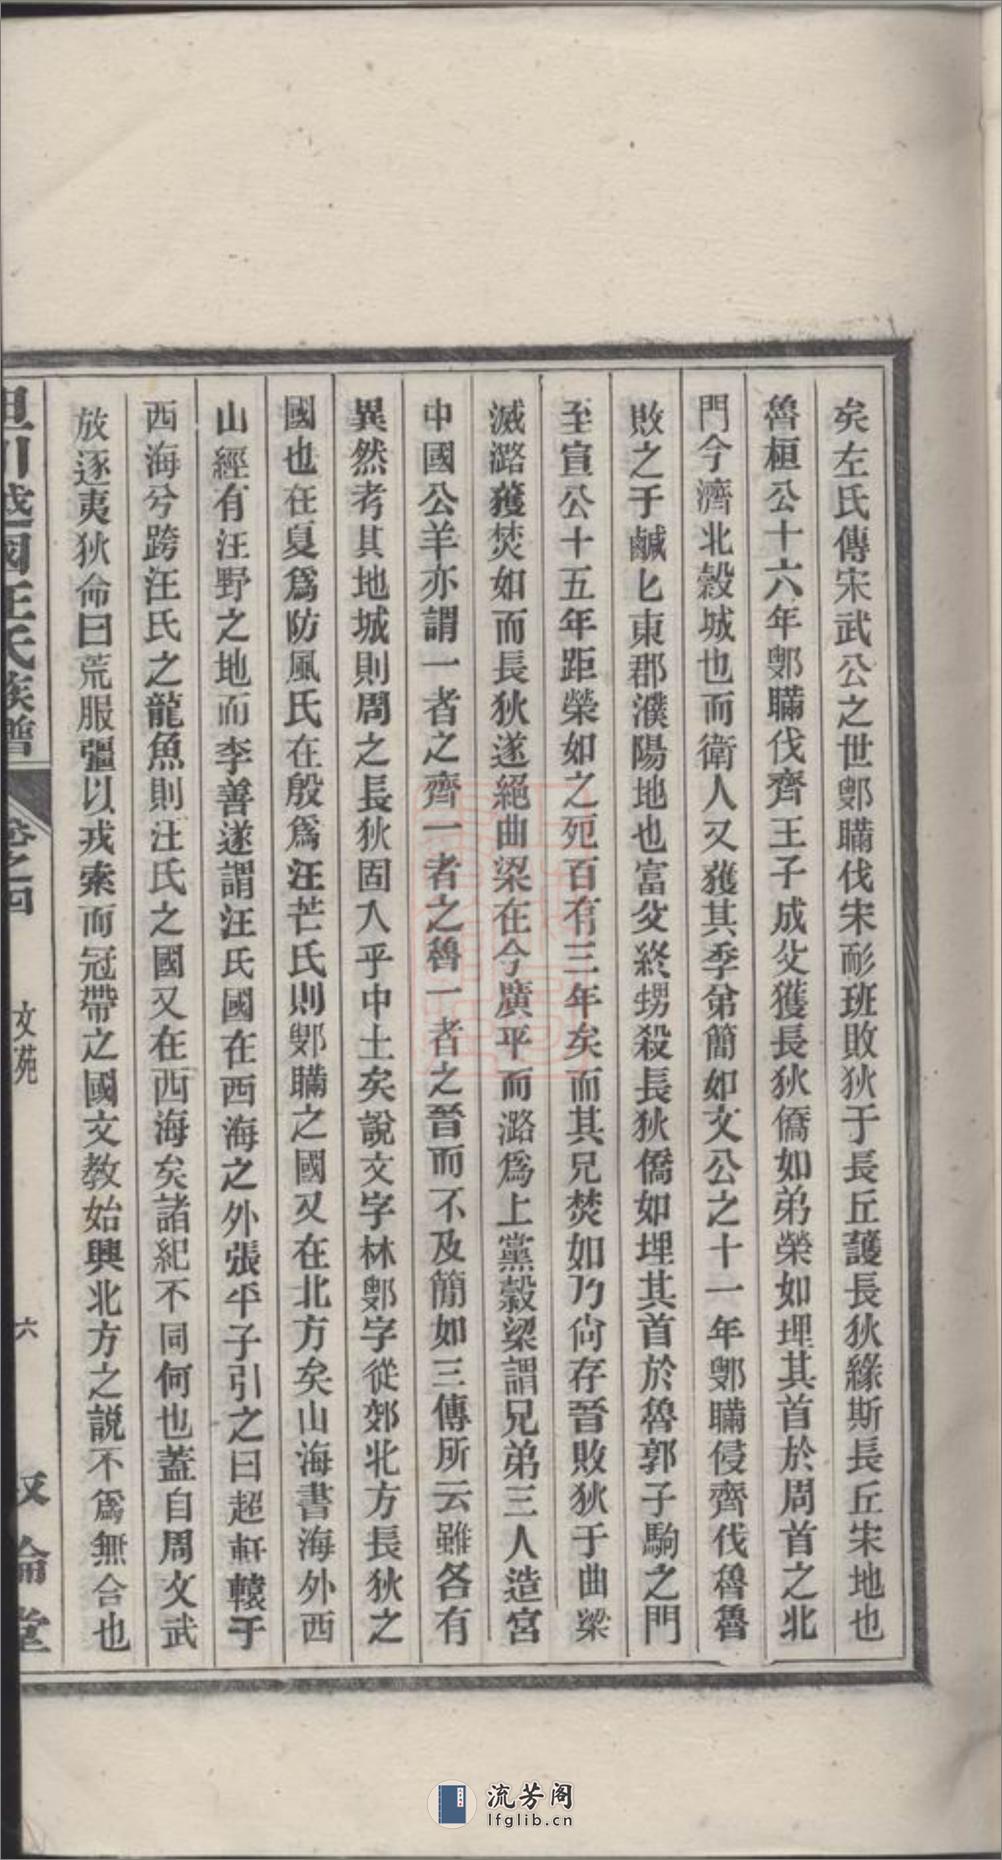 矣左氏傳宋武公之世鄋瞞伐宋耏班敗狄于長丘護長狄緣斯長丘宋地也
魯桓公十六年鄋瞞伐齊王子成父獲長狄僑如弟榮如埋其首於周首之北
門今濟北穀城也而衛人又獲其季弟簡如文公之十一年鄋瞞侵齊伐魯魯
敗之于鹹匕東郡濮陽地也富父終甥殺長狄僑如埋其首於魯郭子駒之門
至宣公十五年距榮如之死百有三年矣而其兄焚如乃尙存晉敗狄于曲梁
滅潞獲焚如而長狄遂絕曲梁在今廣平而潞爲上黨穀梁謂兄弟三人造宮
中國公羊亦謂一者之齊一者之魯一者之晉而不及簡如三傳所云雖各有
異然考其地城則周之長狄固入乎中土矣說文字林鄋字從郊北方長狄之
國也在夏爲防風氏在殷爲汪芒氏則鄋瞞之國又在北方矣山海書海外西
山經有汪野之地而李善遂謂汪氏國在西海之外張平子引之曰超軒轅于
西海兮跨汪氏之龍魚則汪氏之國又在西海矣諸紀不同何也蓋自周文武
放逐夷狄命曰荒服彊以戎索而冠帶之國文教始興北方之說不爲無合也
越國汪氏族譜 卷之四 文苑 六 敘倫堂
流芳阁
lfglib.cn